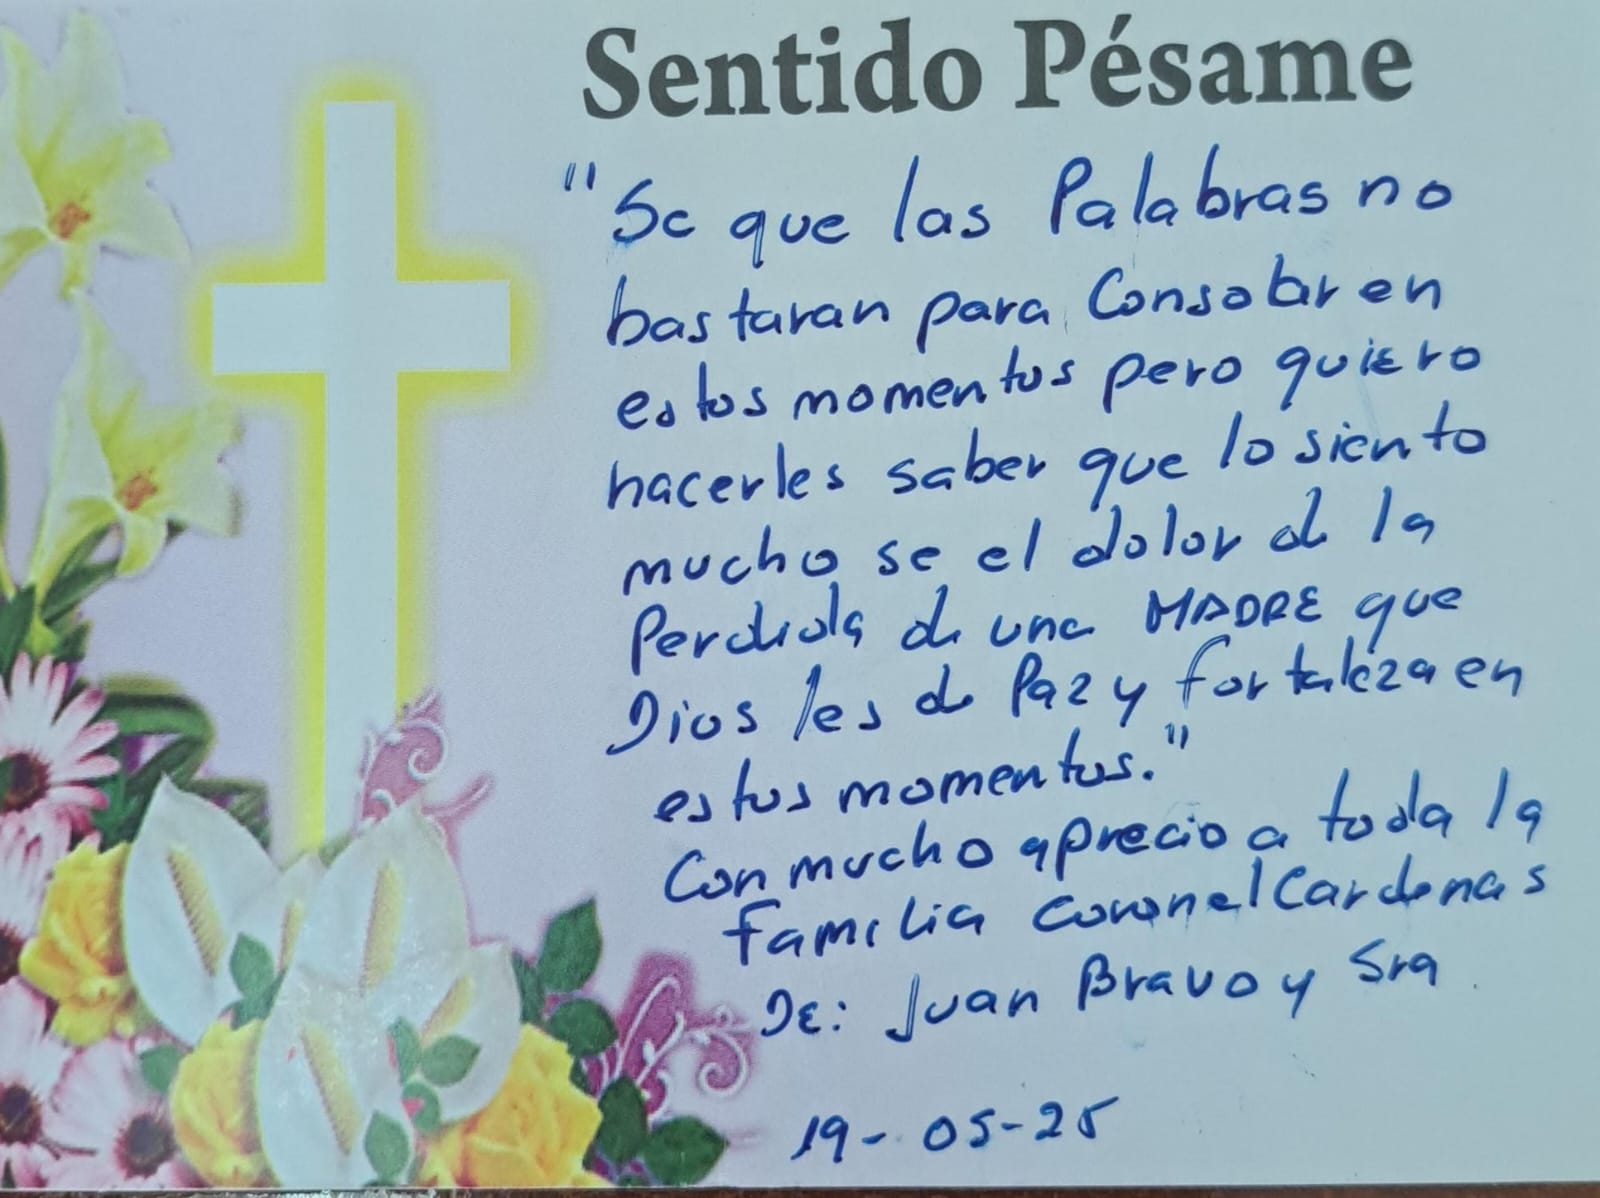 Sentido Pésame
"Se que las Palabras no
bastaran para Consolar en
estos momentos pero quiero
hacerles saber que lo siento
mucho se el dolor de la
Perdida de una MADRE que
Dios les de Paz y fortaleza en
estos momentos."
Con mucho aprecio a toda la
familia Coronel Cardenas
De: Juan Bravo y Sra
19-05-25